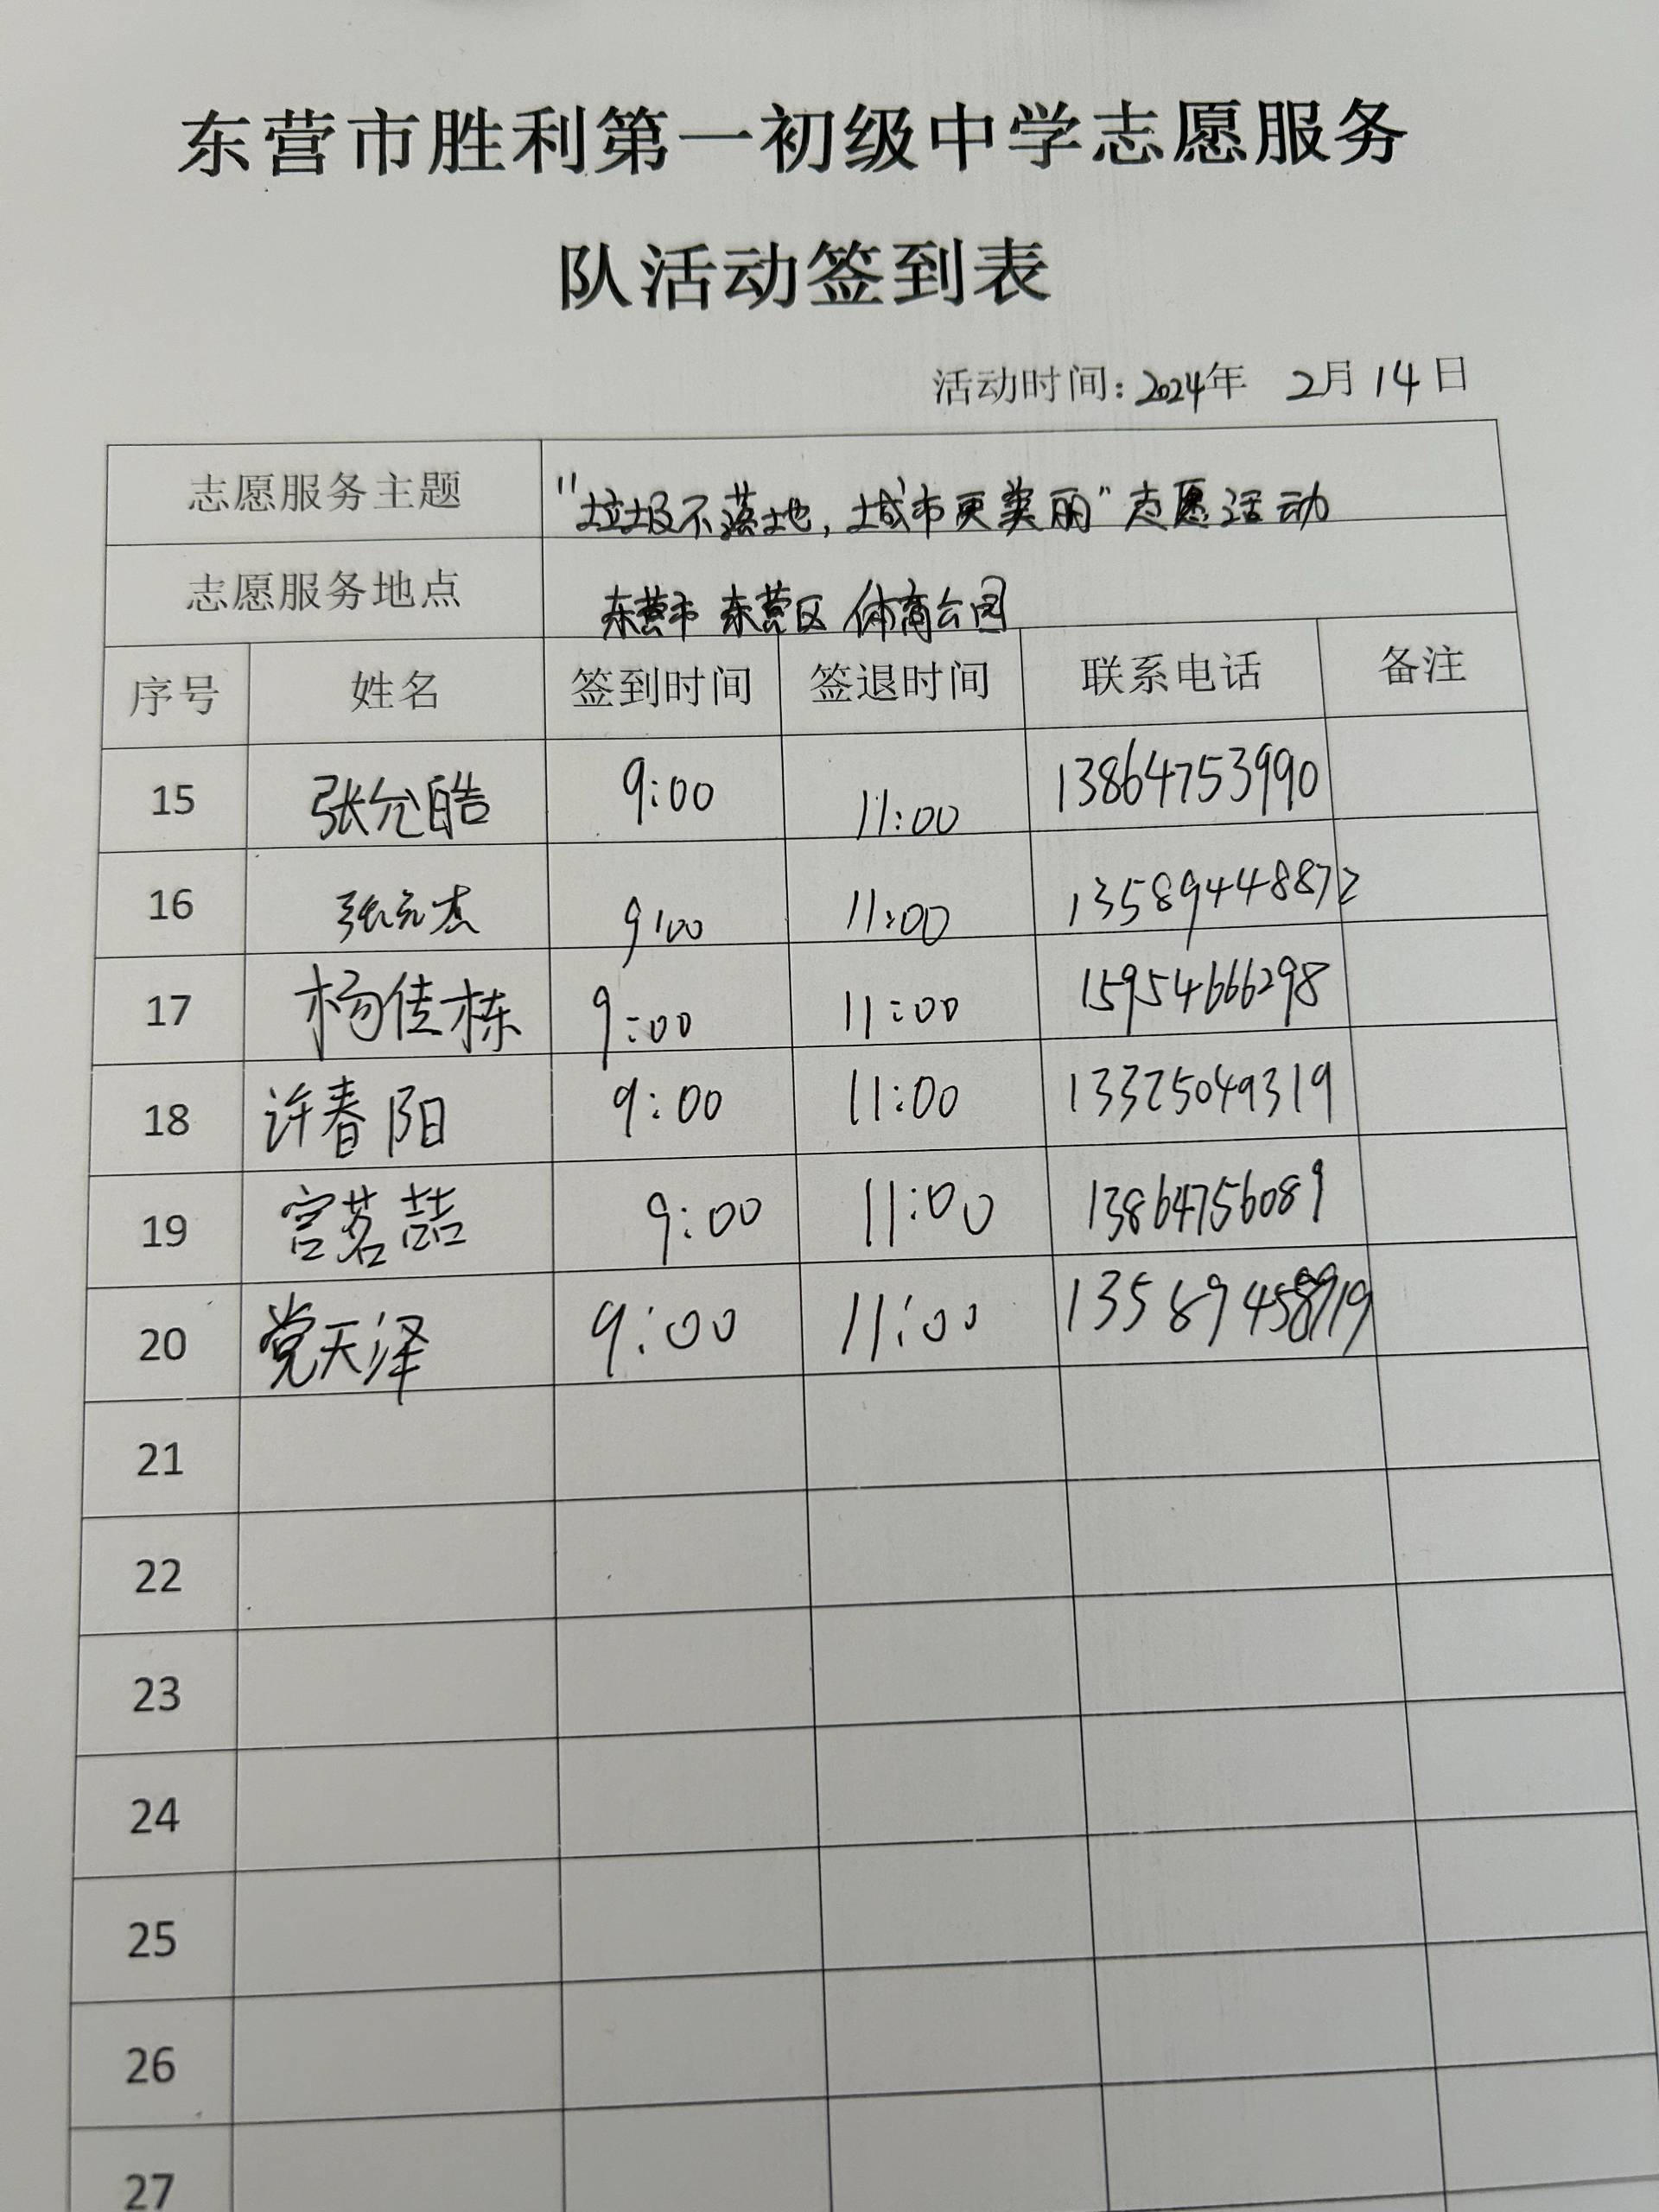 东营市胜利第一初级中学志愿服务
队活动签到表
活动时间：2024年 2月14日
志愿服务主题 "垃圾不落地，城市更美丽"志愿活动
志愿服务地点 东营市 东营区 体育公园
序号 姓名 签到时间 签退时间 联系电话 备注
15 张允皓 9:00 11:00 13864753990
16 张元杰 9:00 11:00 13589448872
17 杨佳栋 9:00 11:00 15954666298
18 许春阳 9:00 11:00 13325049319
19 宫茗喆 9:00 11:00 13864756089
20 党天泽 9:00 11:00
21
22
23
24
25
26
27